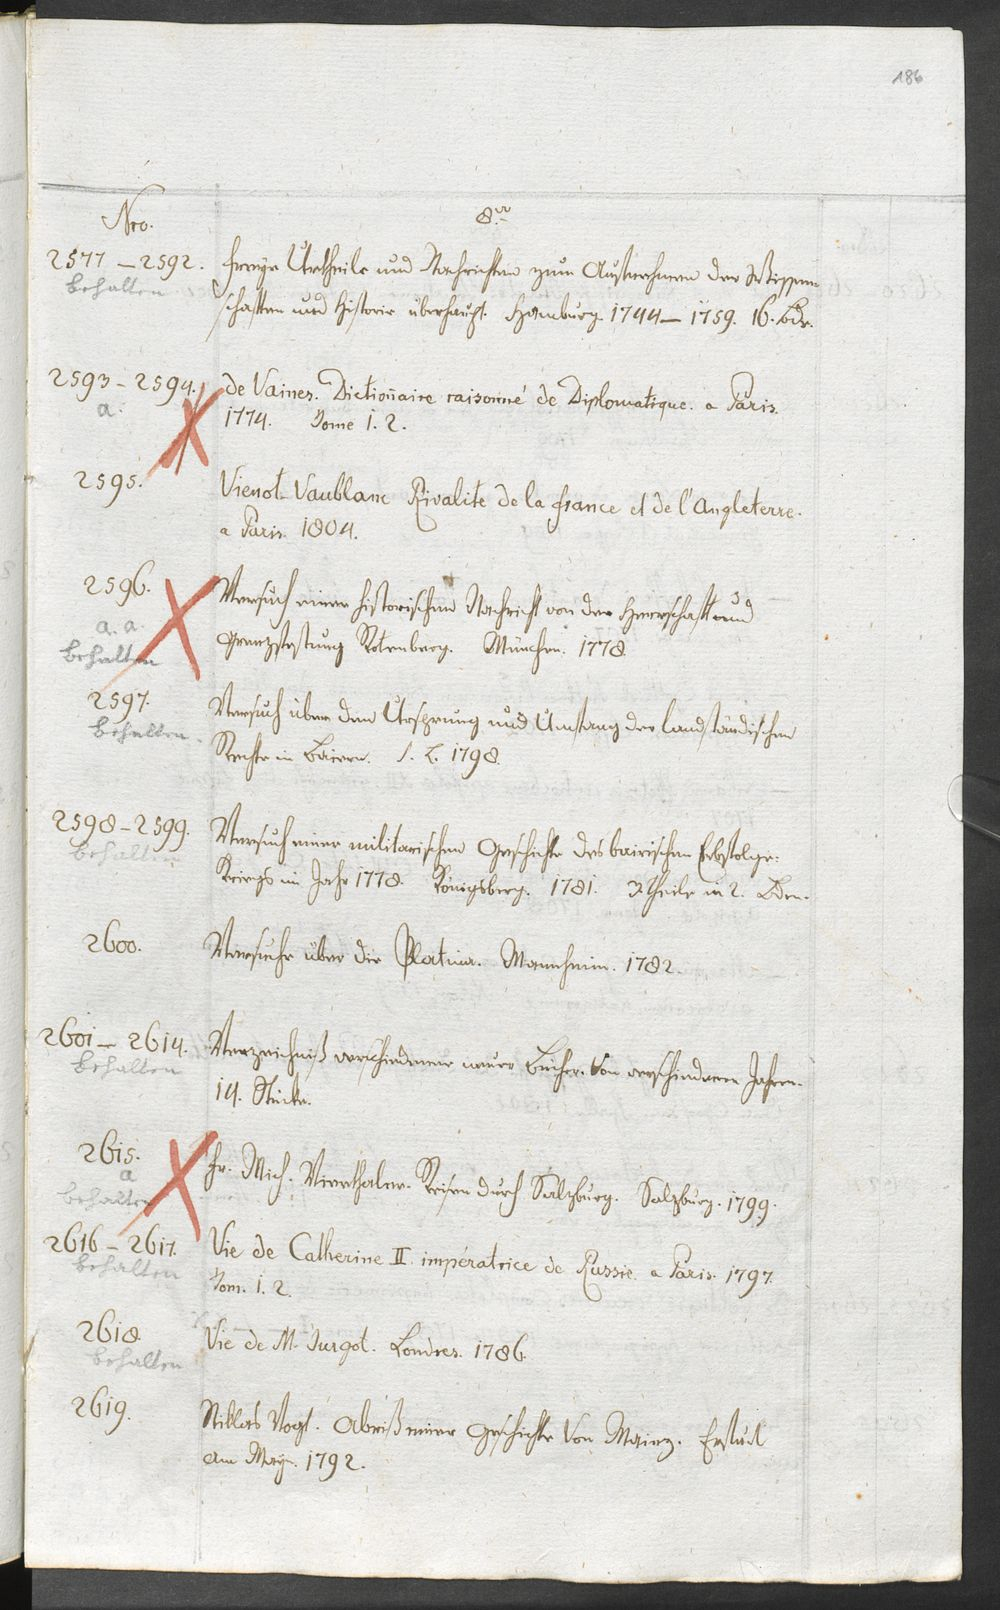 186
Nro. 8vo
2577 – 2592. freye Urtheile und Nachrichten zum Aufnehmen der Wissen-
behalten schaften und Historie überhaupt. Hamburg. 1744 – 1759. 16. Bde.
2593 – 2594. de Vaines. Dictionaire raisonné de Diplomatique. a Paris.
a. 1774. Tome 1. 2.
2595. Vienot-Vaublanc Rivalite de la france et de l'Angleterre.
a Paris. 1804.
2596. Versuch einer historischen Nachricht von der Herrschaft und
a. a.
behalten Granzfestung Rotenberg. München. 1778.
2597. Versuch über den Ursprung und Umfang der landständischen
behalten. Rechte in Baiern. s. L. 1798.
2598 – 2599. Versuch einer militarischen Geschichte des bairischen Erbfolge-
behalten Kriegs im Jahr 1778. Königsberg. 1781. 2 Theile in 2. Bden.
2600. Versuche über die Platina. Mannheim. 1782.
2601 – 2614. Verzeichniß verschiedener neuer Bücher. Von verschiedenen Jahren.
behalten 14. Stücke.
2615. fr. Mich. Vierthaler. Reisen durch Salzburg. Salzburg. 1799.
a
behalten
2616 – 2617. Vie de Catherine II. impératrice de Russie. a Paris. 1797.
behalten Tom. 1. 2.
2618. Vie de M. Turgot. Londres. 1786.
behalten
2619. Niklas Vogt. Abriß einer Geschichte Von Mainz.
am Mayn. 1792.